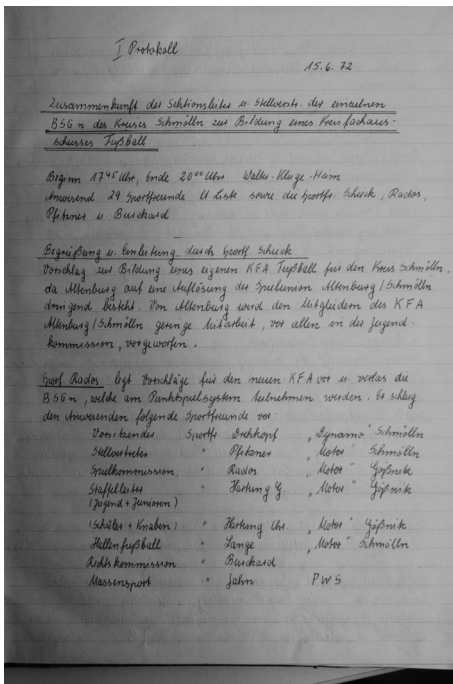 I Protokoll
15.6.72
Zusammenkunft der Sektionsleiter u. Stellvertr. der einzelnen
BSGn des Kreises Schmölln zur Bildung eines Kreisfachaus-
schusses Fußball
Beginn 17 45 Uhr, Ende 20 00 Uhr Walter-Kluge-Heim
Anwesend 29 Sportfreunde lt Liste sowie die Sportfr. Schuck, Rados,
Pfitzner u Burckard
Begrüßung u. Einleitung durch Sportf. Schuck
Vorschlag zur Bildung eines eigenen KFA Fußball für den Kreis Schmölln,
da Altenburg auf eine Auflösung der Spielunion Altenburg/Schmölln
dringend besteht. Von Altenburg wird den Mitgliedern des KFA
Altenburg/Schmölln geringe Mitarbeit, vor allen in der Jugend-
kommission, vorgeworfen.
Sportf. Rados legt Vorschläge für den neuen KFA vor u. verlas die
BSGn, welche am Punktspielsystem teilnehmen werden. Er schlug
den Anwesenden folgende Sportfreunde vor:
Vorsitzender Sportfr. Drehkopf „Dynamo" Schmölln
Stellvertreter " Pfitzner „Motor" Schmölln
Spielkommission " Rados „Motor" Gößnitz
Staffelleiter " Hartung G „Motor" Gößnitz
(Jugend + Junioren)
(Schüler + Knaben) " Hartung Chr. „Motor" Gößnitz
Hallenfußball " Lange „Motor" Schmölln
Rechtskommission " Burckard
Massensport " Jahn PWS